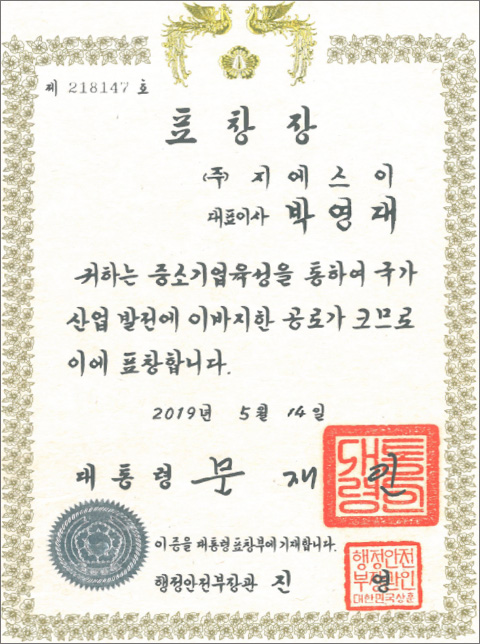 제 218147 호
표창장
(주) 지에스이
대표이사 박영대
귀하는 중소기업육성을 통하여 국가
산업 발전에 이바지한 공로가 크므로
이에 표창합니다.
2019년 5월 14일
대통령 문재인
대통령의인
이 증을 대통령 표창부에 기재합니다.
행정안전부장관 진영
행정안전
부장관인
대한민국상훈